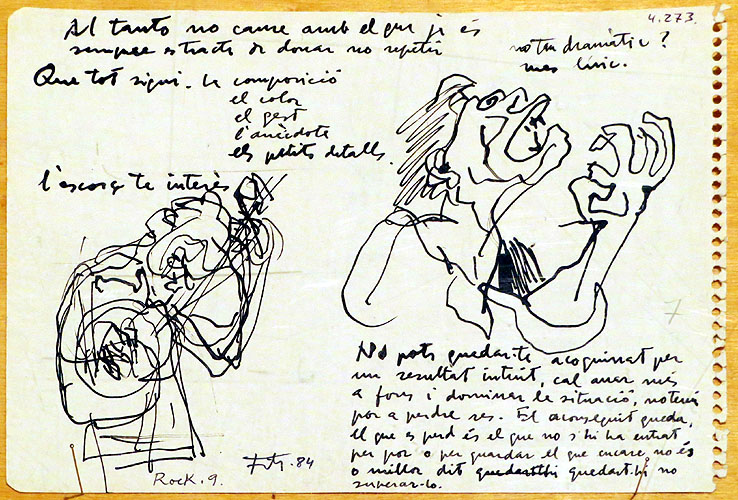 4.273.
Al tanto no caure amb el que ja és
sempre extracte de donar no repetir
no tan dramàtic?
mes líric.
Que tot sigui. la composició
el color
el gest
l'anècdota
els petits detalls.
l'escorç te interès
7
No pots quedar-te acoquinat per
un resultat intuit, cal anar més
a fons i dominar la situació, no tenir
por a perdre res. El aconseguit queda,
el que es perd és el que no s'hi ha entrat
per por o per guardar el que encare no és
o millor dit quedarthi quedart-hi no
superar-lo.
Rock. 9.
84